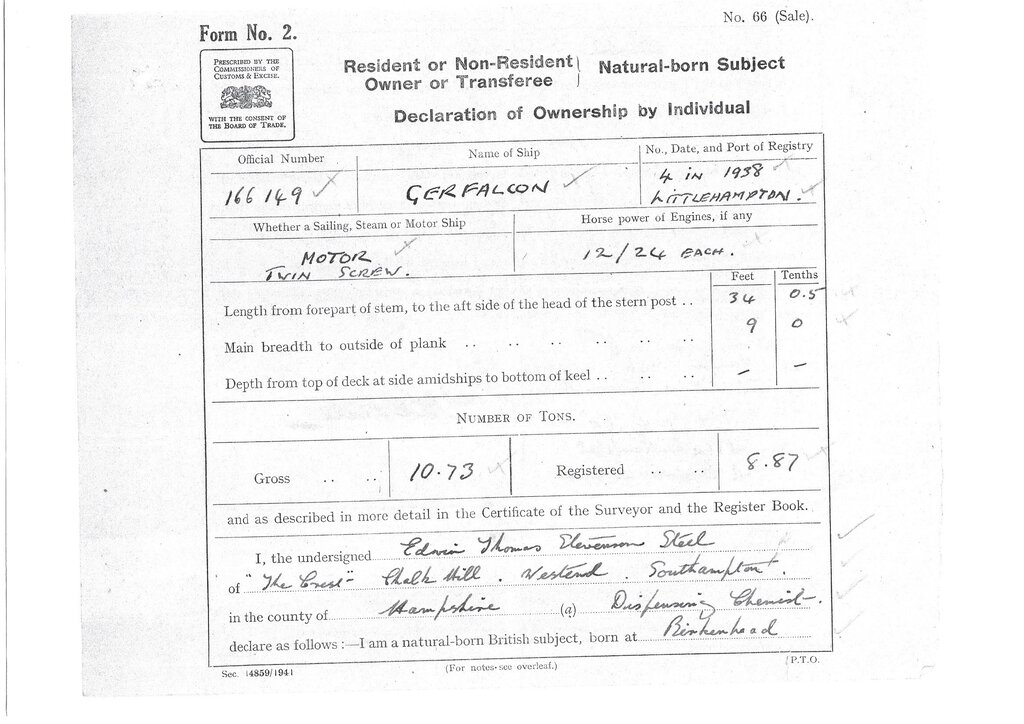 No. 66 (Sale).
Form No. 2.
PRESCRIBED BY THE
COMMISSIONERS OF
CUSTOMS & EXCISE.
WITH THE CONSENT OF
THE BOARD OF TRADE.
Resident or Non-Resident
Owner or Transferee
Natural-born Subject
Declaration of Ownership by Individual
Official Number
Name of Ship
No., Date, and Port of Registry
166149
GERFALCON
4 IN 1938
LITTLEHAMPTON.
Whether a Sailing, Steam or Motor Ship
Horse power of Engines, if any
MOTOR
TWIN SCREW.
12/24 EACH.
Feet Tenths
Length from forepart of stem, to the aft side of the head of the stern post .. 34 0.5
Main breadth to outside of plank .. .. .. .. .. 9 0
Depth from top of deck at side amidships to bottom of keel .. .. .. – –
NUMBER OF TONS.
Gross .. .. 10.73 Registered .. .. 8.87
and as described in more detail in the Certificate of the Surveyor and the Register Book.
I, the undersigned Edwin Thomas Stevenson Steel
of "The Crest" Chalk Hill. Westend. Southampton.
in the county of Hampshire (a) Dispensing Chemist.
declare as follows :—I am a natural-born British subject, born at Birkenhead
Sec. 14859/1941
(For notes see overleaf.)
P.T.O.